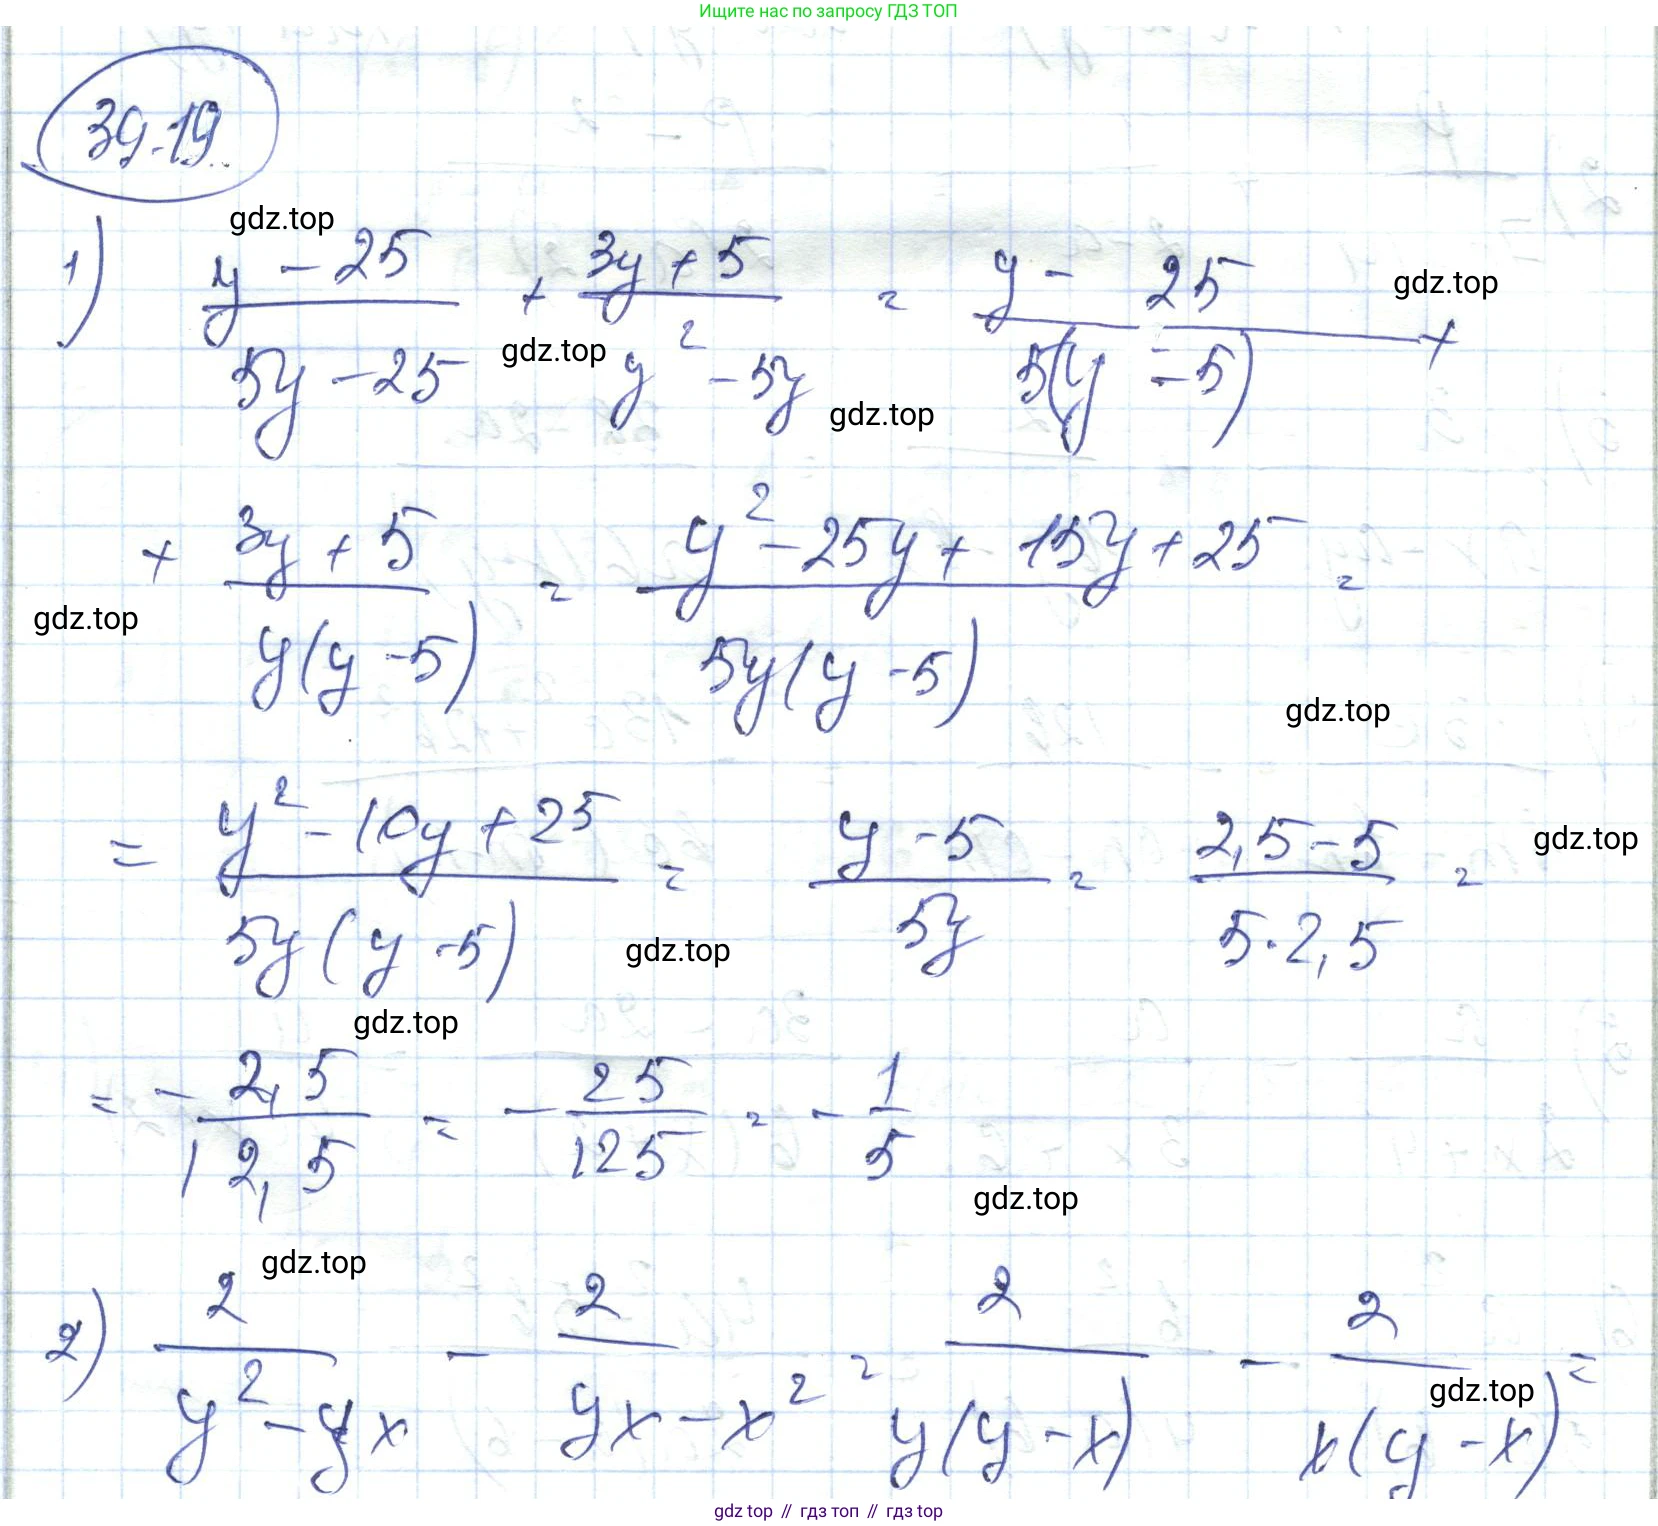 Ищите нас по запросу ГДЗ ТОП
39.19.
gdz.top
1) (y - 25)/(5y - 25) + (3y + 5)/(y² - 5y) = (y - 25)/(5(y - 5)) +
gdz.top
gdz.top
gdz.top
+ (3y + 5)/(y(y - 5)) = (y² - 25y + 15y + 25)/(5y(y - 5)) =
gdz.top
gdz.top
= (y² - 10y + 25)/(5y(y - 5)) = (y - 5)/(5y) = (2,5 - 5)/(5·2,5) =
gdz.top
gdz.top
gdz.top
= - 2,5/12,5 = - 25/125 = - 1/5
gdz.top
gdz.top
2) 2/(y² - yx) - 2/(yx - x²) = 2/(y(y - x)) - 2/(x(y - x)) =
gdz.top
gdz top // гдз топ // гдз top